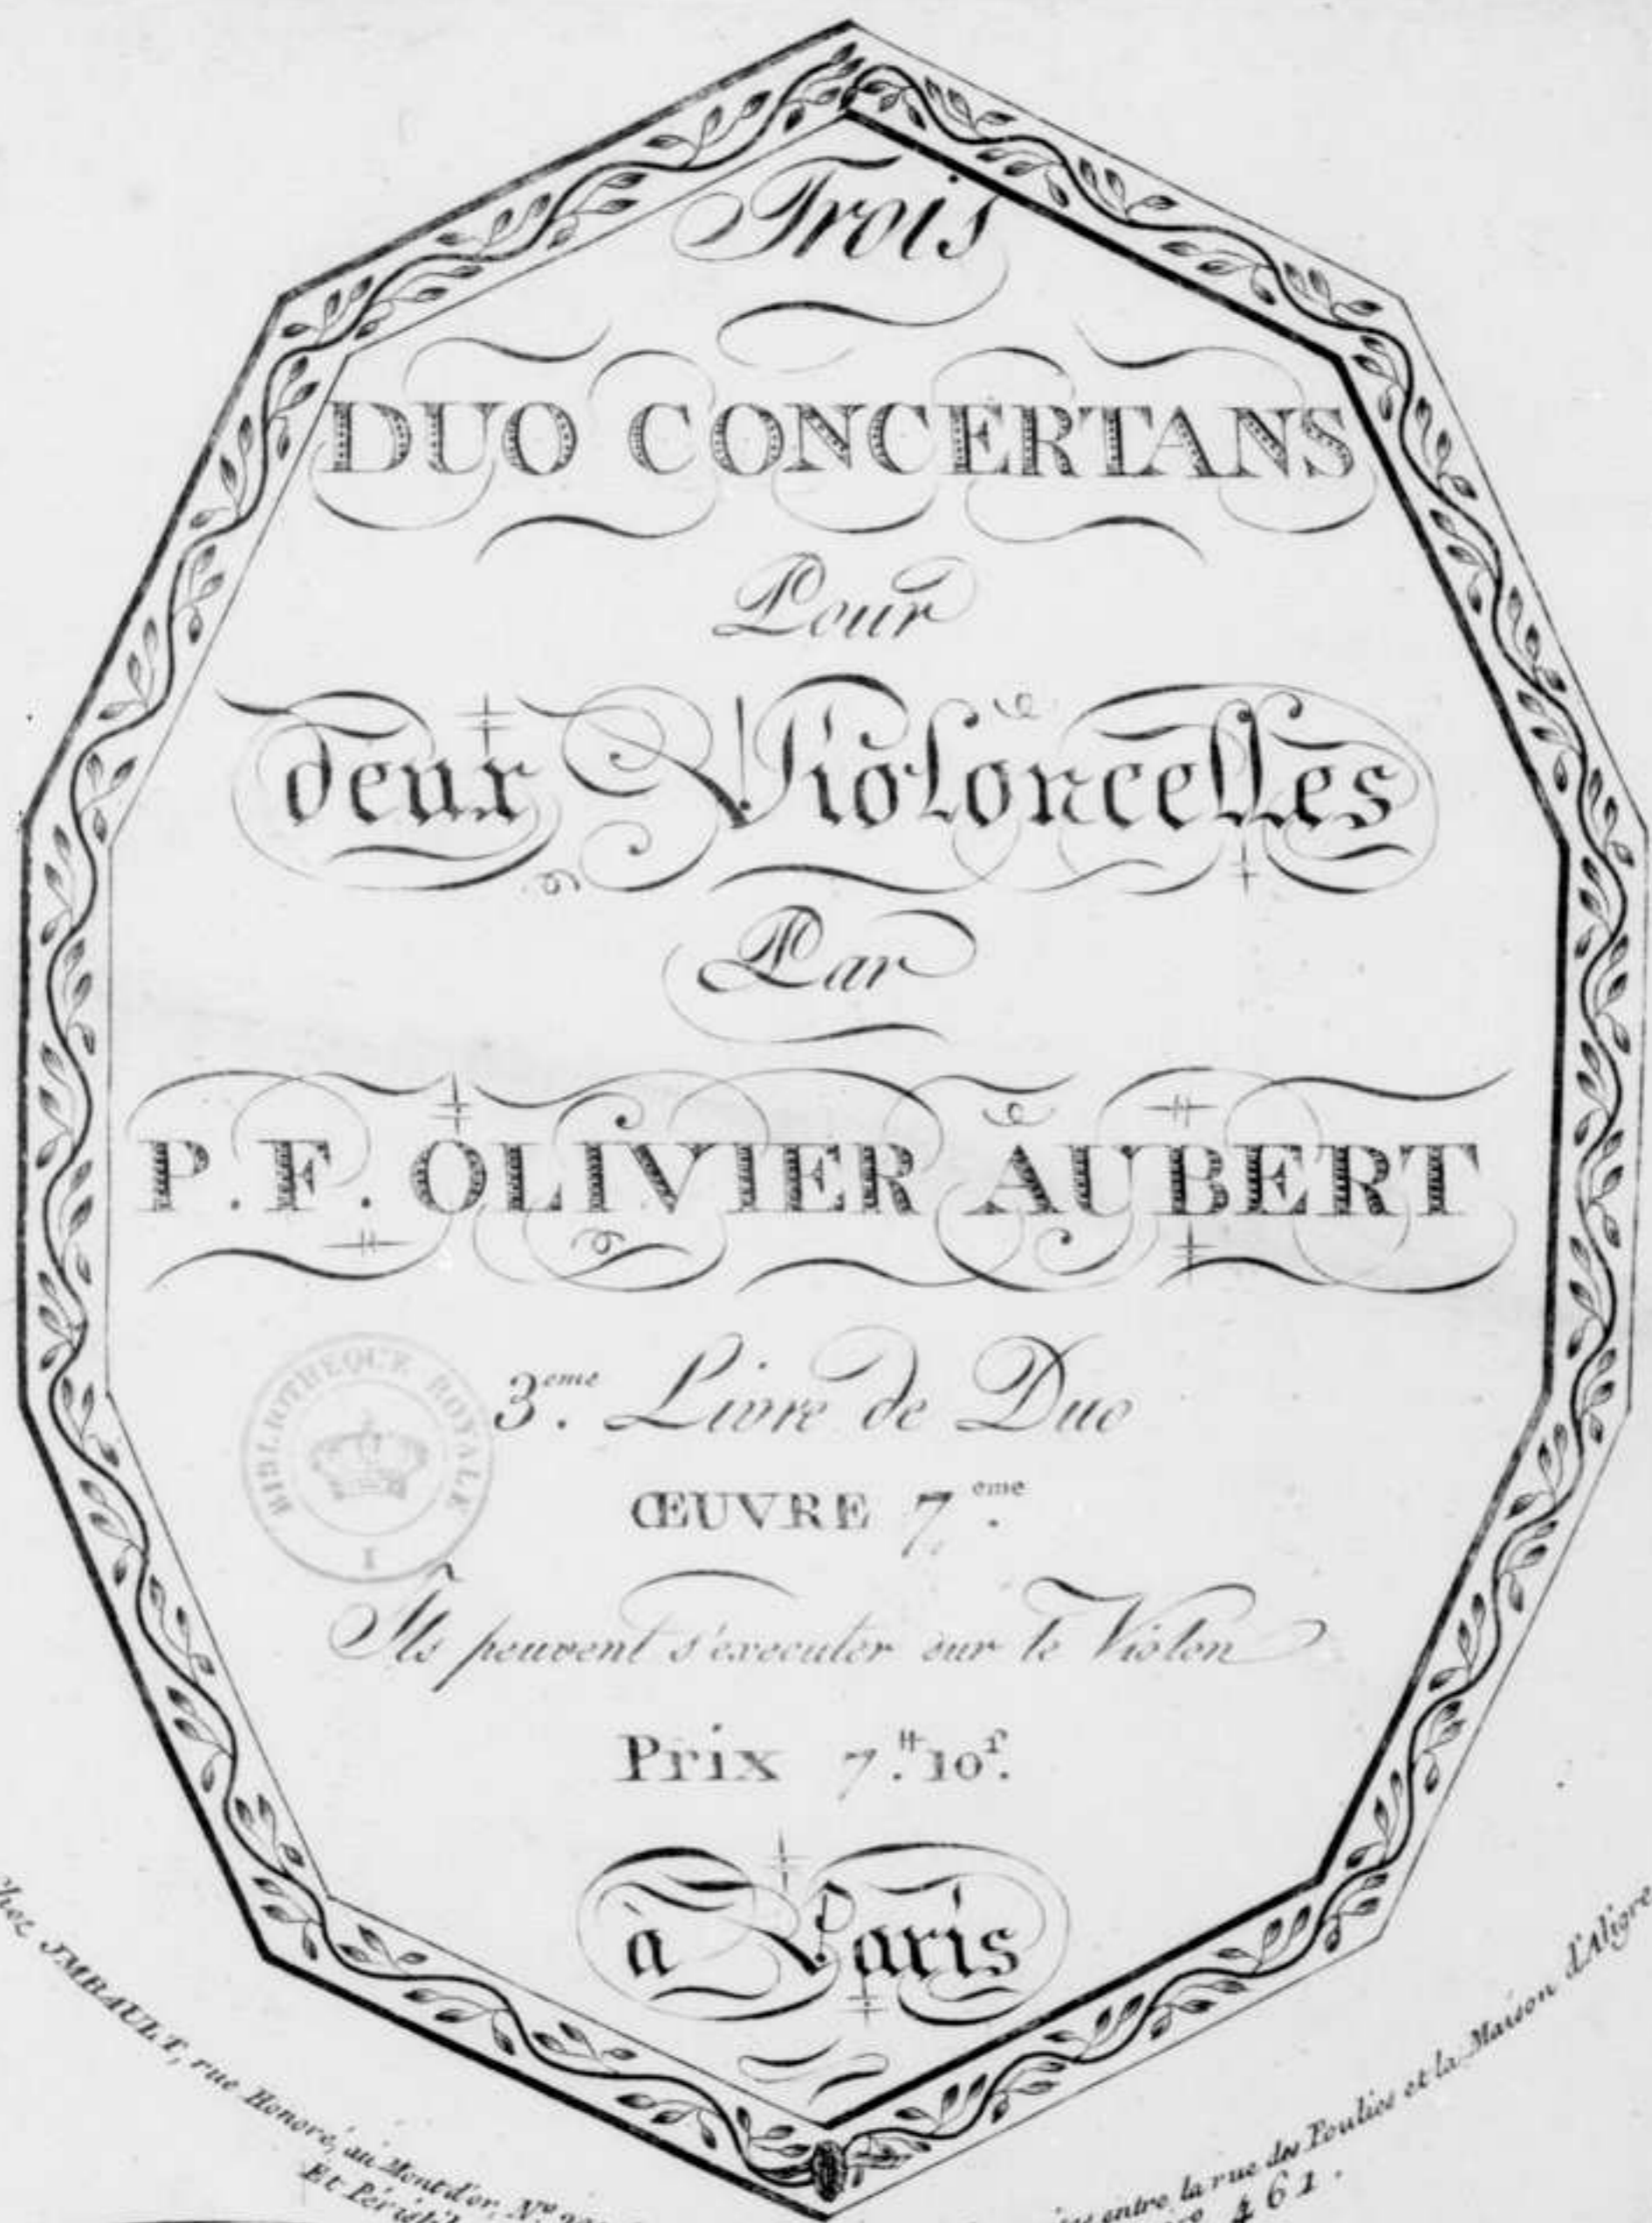 Trois
DUO CONCERTANS
Pour
deux Violoncelles
Par
P. F. OLIVIER AUBERT
3.eme Livre de Duo
BIBLIOTHEQUE ROYALE
I
ŒUVRE 7.eme
Ils peuvent s'executer sur le Violon
Prix 7.tt 10.s
à Paris
Chez IMBAULT, rue Honoré, au Mont d'or, No entre la rue des Poulies et la Maison d'Aligre
Et 461.